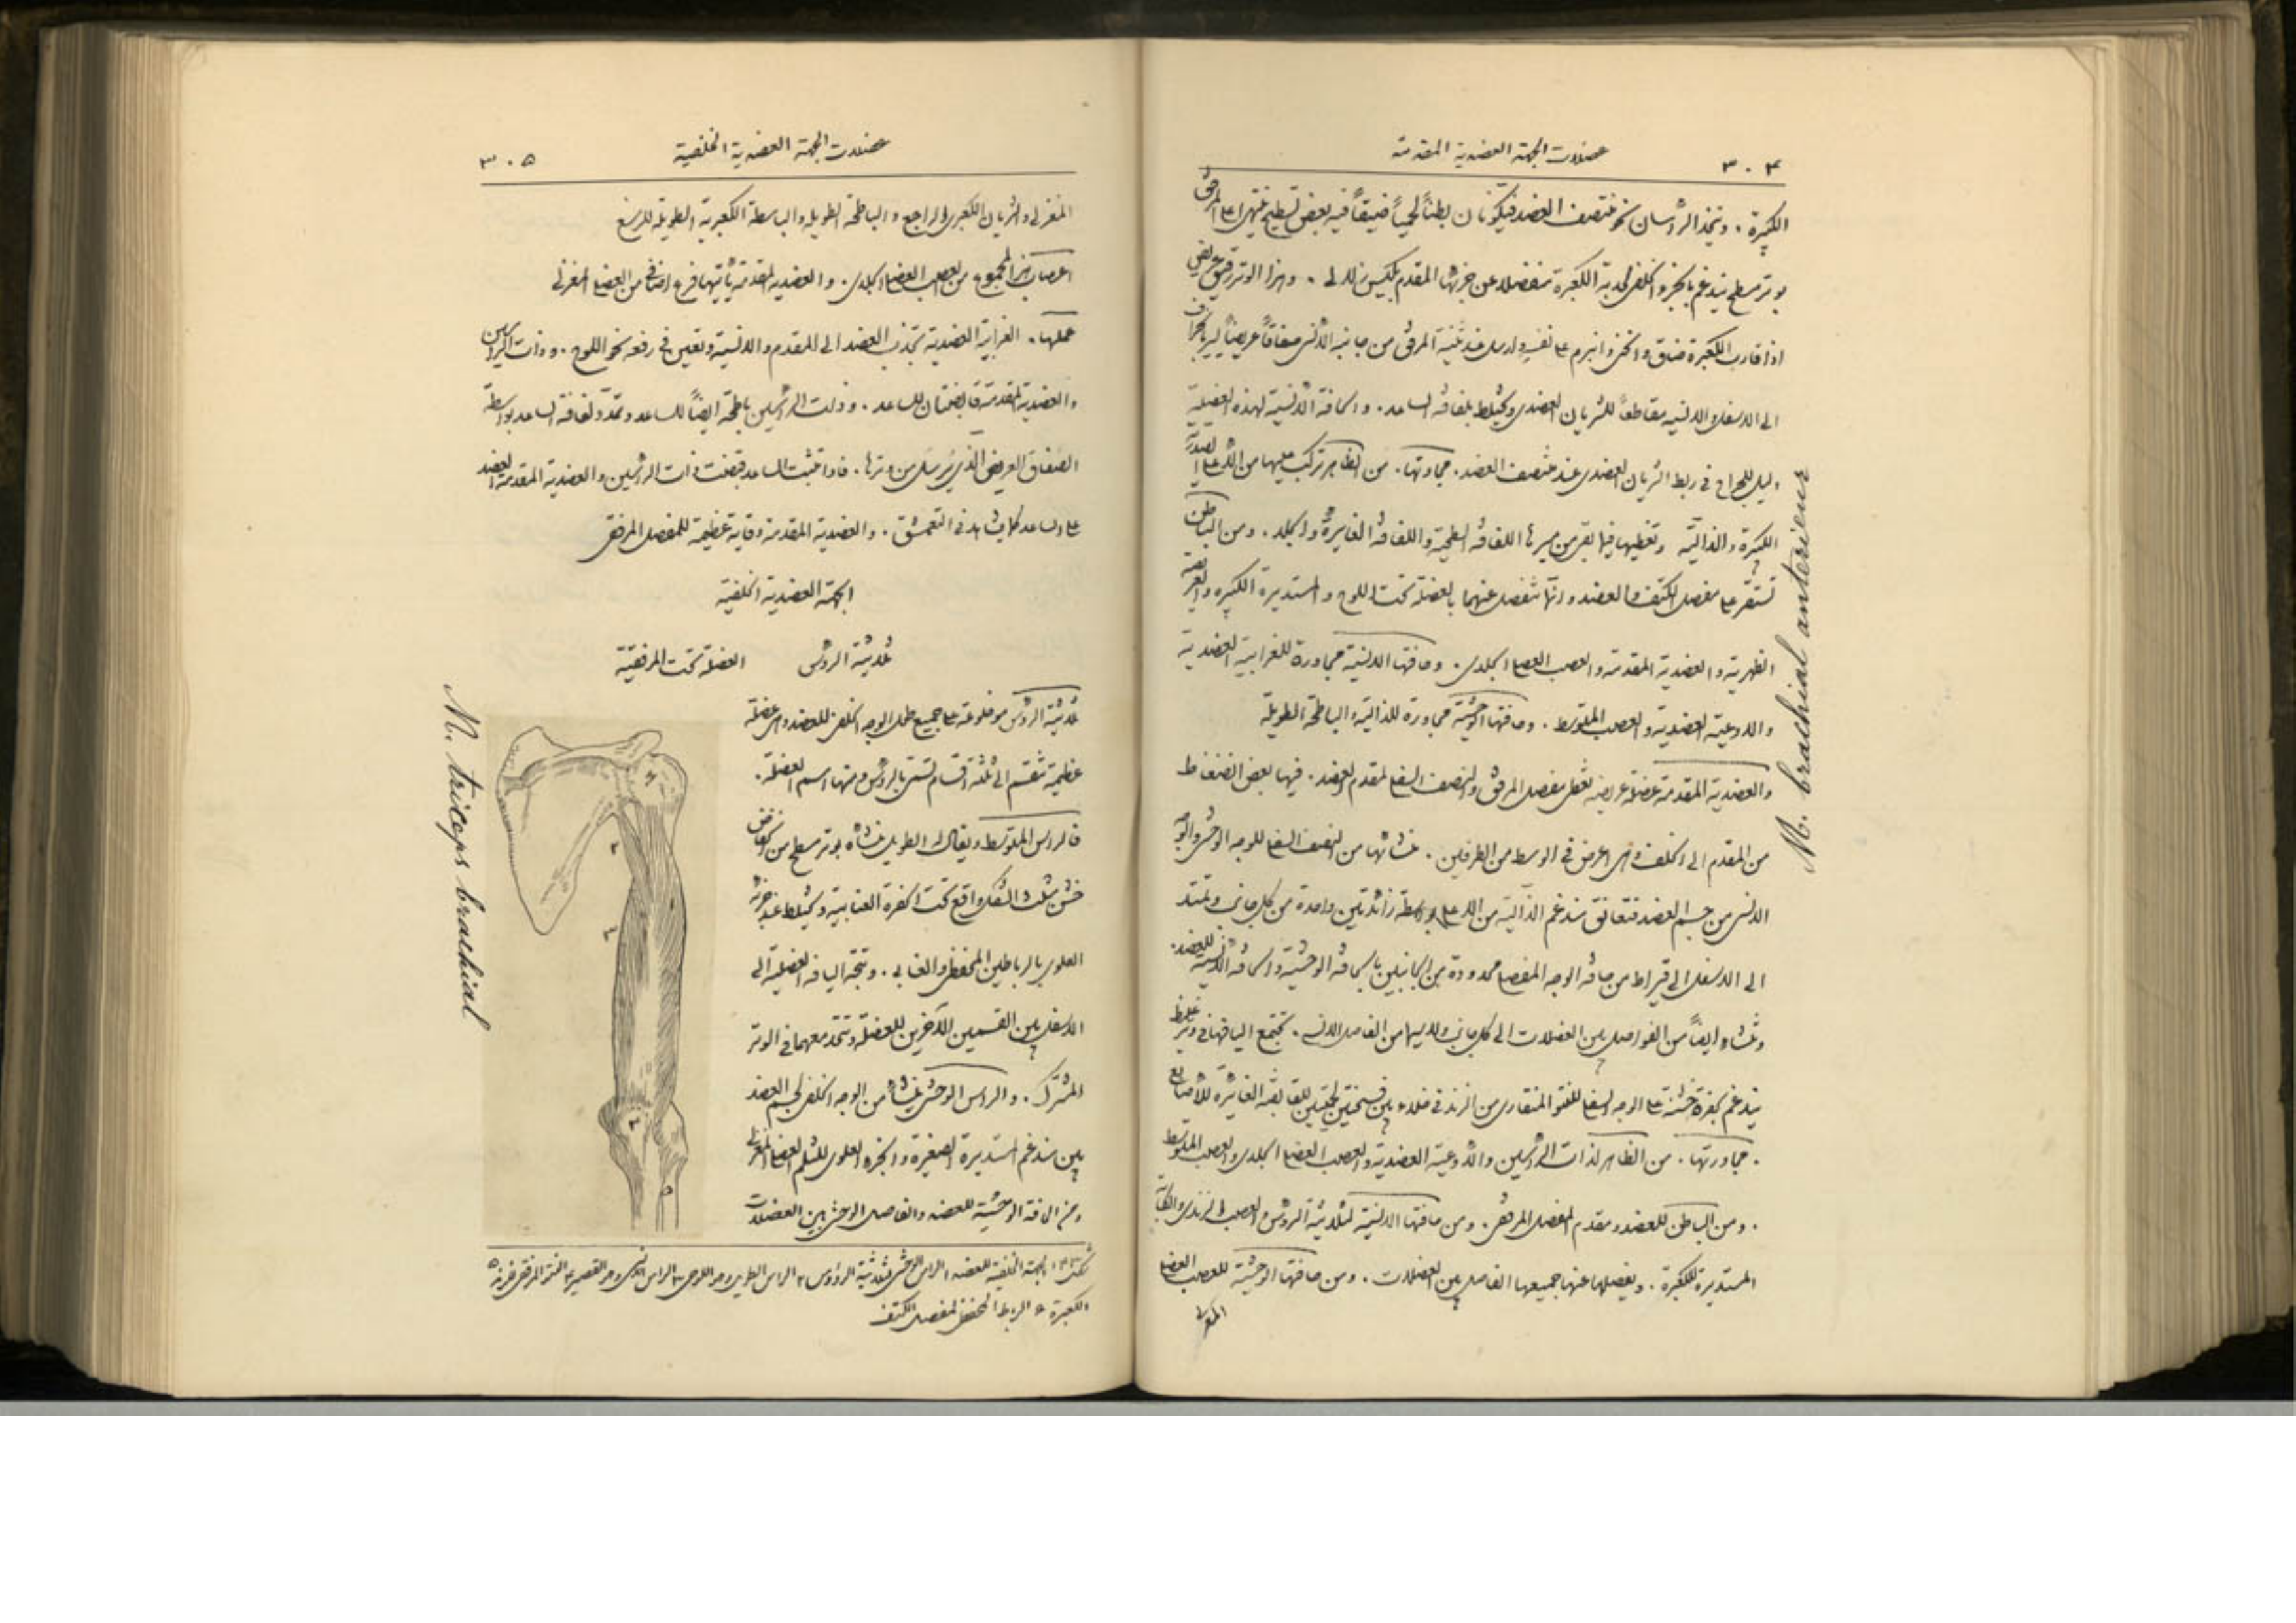 ٣٠٤
عضلات الجهة العضدية المقدمة
الكعبرة. ويتحد الراسان نحو منتصف العضد فيكونان بطناً لحمياً ضيقاً فيه بعض تسطيح ينتهي اعلى المرفق
بوتر مسطح يندغم بالجزء الخلفي لحدبة الكعبرة منفصلا عن جزئها المقدم بكيس زلالي. وهذا الوتر رقيق عريض
اذا قارب الكعبرة ضاق وانبرم على نفسه ويرسل عند ثنية المرفق من جانبه الانسي صفاقاً عريضاً يسير بانحراف
الى الاسفل والانسية مقاطعاً للشريان العضدي ويختلط بلفافة الساعد. والحافة الانسية لهذه العضلة
دليل للجراح في ربط الشريان العضدي عند منتصف العضد. مجاورتها. من الظاهر تركب عليها من الاعلى الصدرية
الكبيرة والدالية وتغطيها فيما بقي من سيرها اللفافة السطحية واللفافة الغايرة والجلد. ومن الباطن
تستقر على مفصل الكتف والعضد وانها تنفصل عنهما بالعضلة تحت اللوح والمستديرة الكبيرة والعريضة
الظهرية والعضدية المقدمة والعصب العضلي الجلدي. وحافتها الانسية مجاورة للغرابية العضدية
والاوعية العضدية والعصب المتوسط. وحافتها الوحشية مجاورة للدالية والباطحة الطويلة
والعضدية المقدمة عضلة عريضة تغطي مفصل المرفق والنصف السفلي لمقدم العضد. فيها بعض انضغاط
من المقدم الى الخلف وهي اعرض في الوسط من الطرفين. منشاها من النصف السفلي للوجه الوحشي والوجه
الانسي من جسم العضد فتعانق مندغم الدالية من الاعلى بواسطة زائدتين واحدة من كل جانب وتمتد
الى الاسفل الى قيراط من حافة الوجه المفصلي محدودة من الجانبين بالحافة الوحشية والحافة الانسية للعضد.
ومنشاه ايضاً من الفواصل بين العضلات الى كل جانب ولاسيما من الفاصل الانسي. تجتمع اليافها في وتر غليظ
يندغم بحفرة خشنة على الوجه السفلي للنتو المنقاري من الزند في خلاء بين فسحتين لحميتين للقابضة الغائرة للاصابع
. مجاورتها. من الظاهر لذات الراسين والاوعية العضدية والعصب العضلي الجلدي والعصب المتوسط
. ومن الباطن للعضد ومقدم المفصل المرفقي. ومن حافتها الانسية لثلاثية الرؤس والعصب الزندي والكابة
المستديرة للكعبرة. ويفصلها عنها جميعها الفاصل بين العضلات. ومن حافتها الوحشية للعصب العضلي
المغزلي
M. brachial anterieur
عضلات الجهة العضدية الخلفية
٣٠٥
المغزلي والشريان الكعبري الراجع والباطحة الطويلة والباسطة الكعبرية الطويلة للرسغ
اعصاب هذا المجموع من العصب العضلي الجلدي. والعضدية المقدمة ياتيها فرع اضافي من العضلي المغزلي
عملها. الغرابية العضدية تجذب العضد الى المقدم والانسية وتعين في رفعه نحو اللوح. وذات الراسين
والعضدية المقدمة قابضتان للساعد. وذات الراسين باطحة ايضاً للساعد وتمدد لفافة الساعد بواسطة
الصفاق العريض الذي يُرسَل من وترها. فاذا تثبت الساعد قبضت ذات الراسين والعضدية المقدمة العضد
على الساعد كما يشاهد في التعمشق. والعضدية المقدمة وقاية عظيمة للمفصل المرفقي
الجهة العضدية الخلفية
ثلاثية الروس العضلة تحت المرفقية
ثلاثية الروس موضوعة على جميع طول الوجه الخلفي للعضد وهي عضلة
عظيمة تنقسم الى ثلثة اقسام تسمى بالروس ومنها اسم العضلة.
فالراس المتوسط ويقال له الطويل منشاه بوتر مسطح من انخفاض
خشن مثلث الشكل واقع تحت الحفرة العنابية ويختلط عند جزئه
العلوي بالرباطين المحفظي والغابي. وتتجه اليافه العضلية الى
الاسفل بين القسمين الآخرين للعضلة وتتحد معهما في الوتر
المشترك. والراس الوحشي منشاه من الوجه الخلفي لجسم العضد
بين مندغم المستديرة الصغيرة والجزء العلوي للثلم العضلي المغزلي
ومن الحافة الوحشية للعضد والفاصل الوحشي بين العضلات
الجهة الخلفية للعضد ١ الراس الوحشي لثلاثية الرؤوس ٢ الراس الطويل وهو اللوحي ٣ الراس الانسي وهو القصير ٤ النتو المرفقي ٥
الكعبرة ٦ الرباط المحفظي لمفصل الكتف
M. triceps brachial